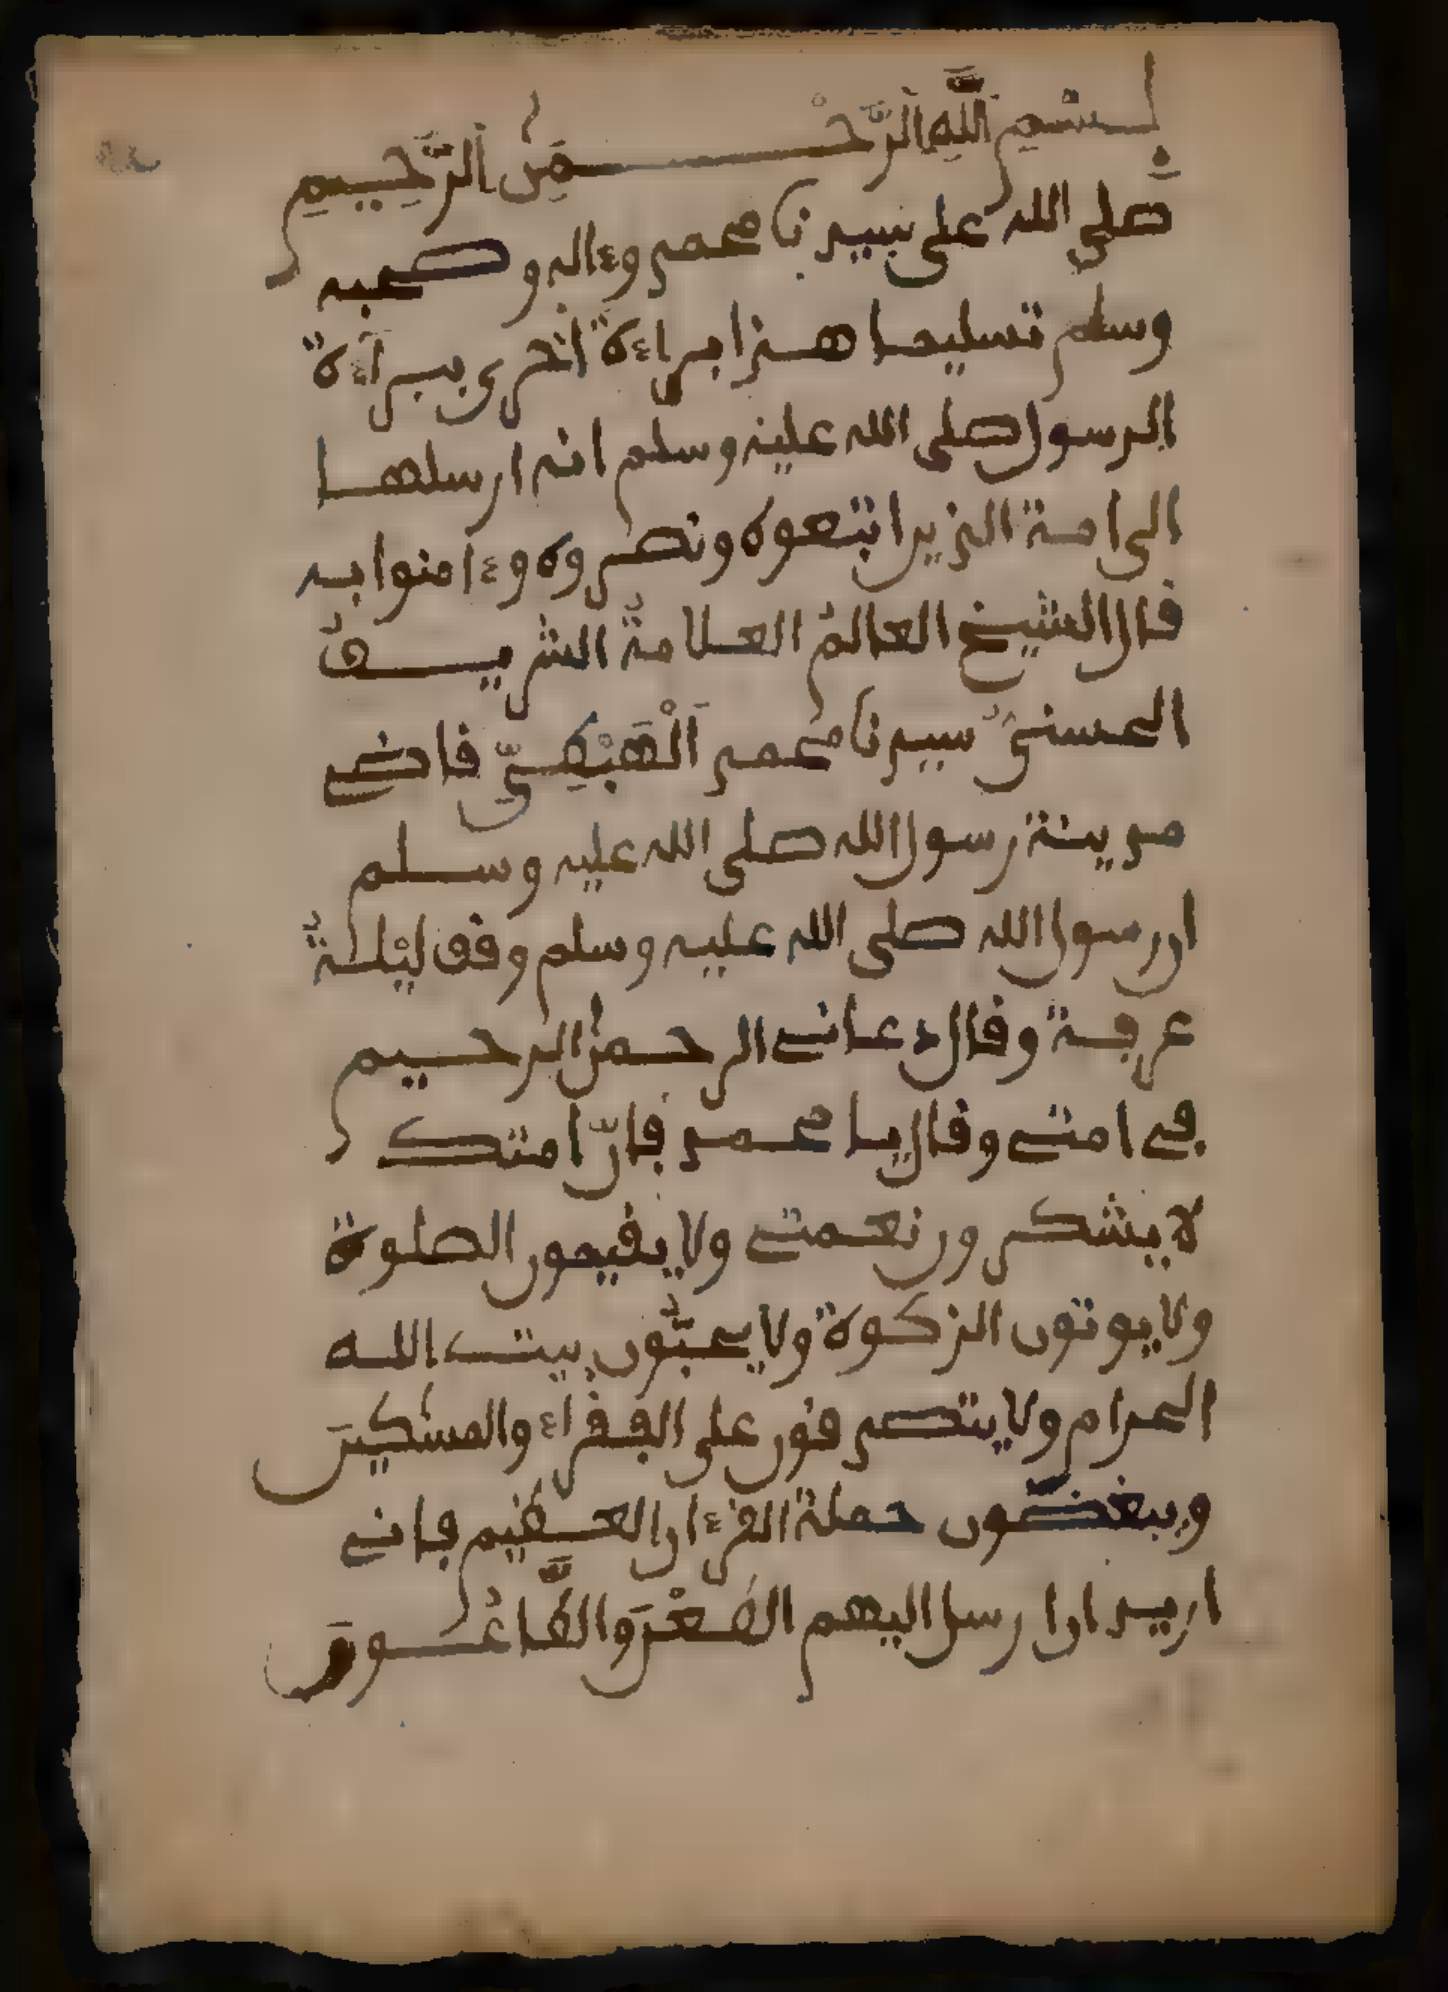 بِسْمِ اللَّهِ الرَّحْمَٰنِ الرَّحِيمِ
صلى الله على سيدنا محمد وءاله وصحبه
وسلم تسليما هذا براءة اخرى ببرآءة
الرسول صلى الله عليه وسلم انه ارسلها
الى امة الذين ابتعوه ونصروه وءامنوا به
قال الشيخ العالمُ العلامةُ الشريفُ
الحسنيُّ سيدنا محمد اَلْهَبْطِيِّ قاضى
مدينة رسول الله صلى الله عليه وسلم
ان رسول الله صلى الله عليه وسلم وقف ليْلةُ
عرفة وقال دعانى الرحمٰن الرحيم
فى امتى وقال يا محمد فانّ امتك
لا يشكرون نعمتى ولا يقيمون الصلوة
ولا يوتون الزكوة ولا يحجُّون بيت الله
الحرام ولا يتصدقون على الفقراء والمسٰكينَ
ويبغضون حملة القرءان العظيم فانى
اريد ان ارسل اليهم الطعْنَ والطَّاعُونَ